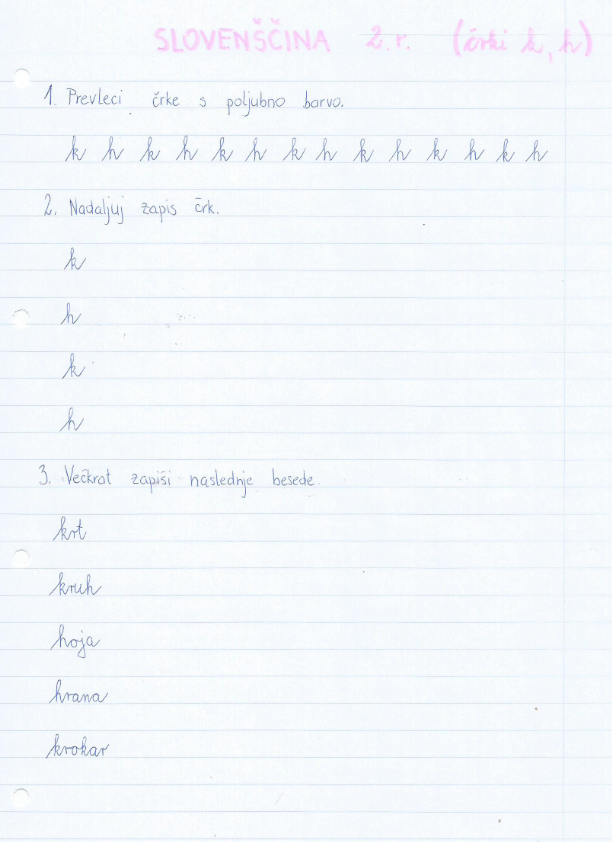 SLOVENŠČINA 2.r. (črki k, h)
1. Prevleci črke s poljubno barvo.
k h k h k h k h k h k h k h
2. Nadaljuj zapis črk.
k
h
k
h
3. Večkrat zapiši naslednje besede.
krt
kruh
hoja
hrana
krokar